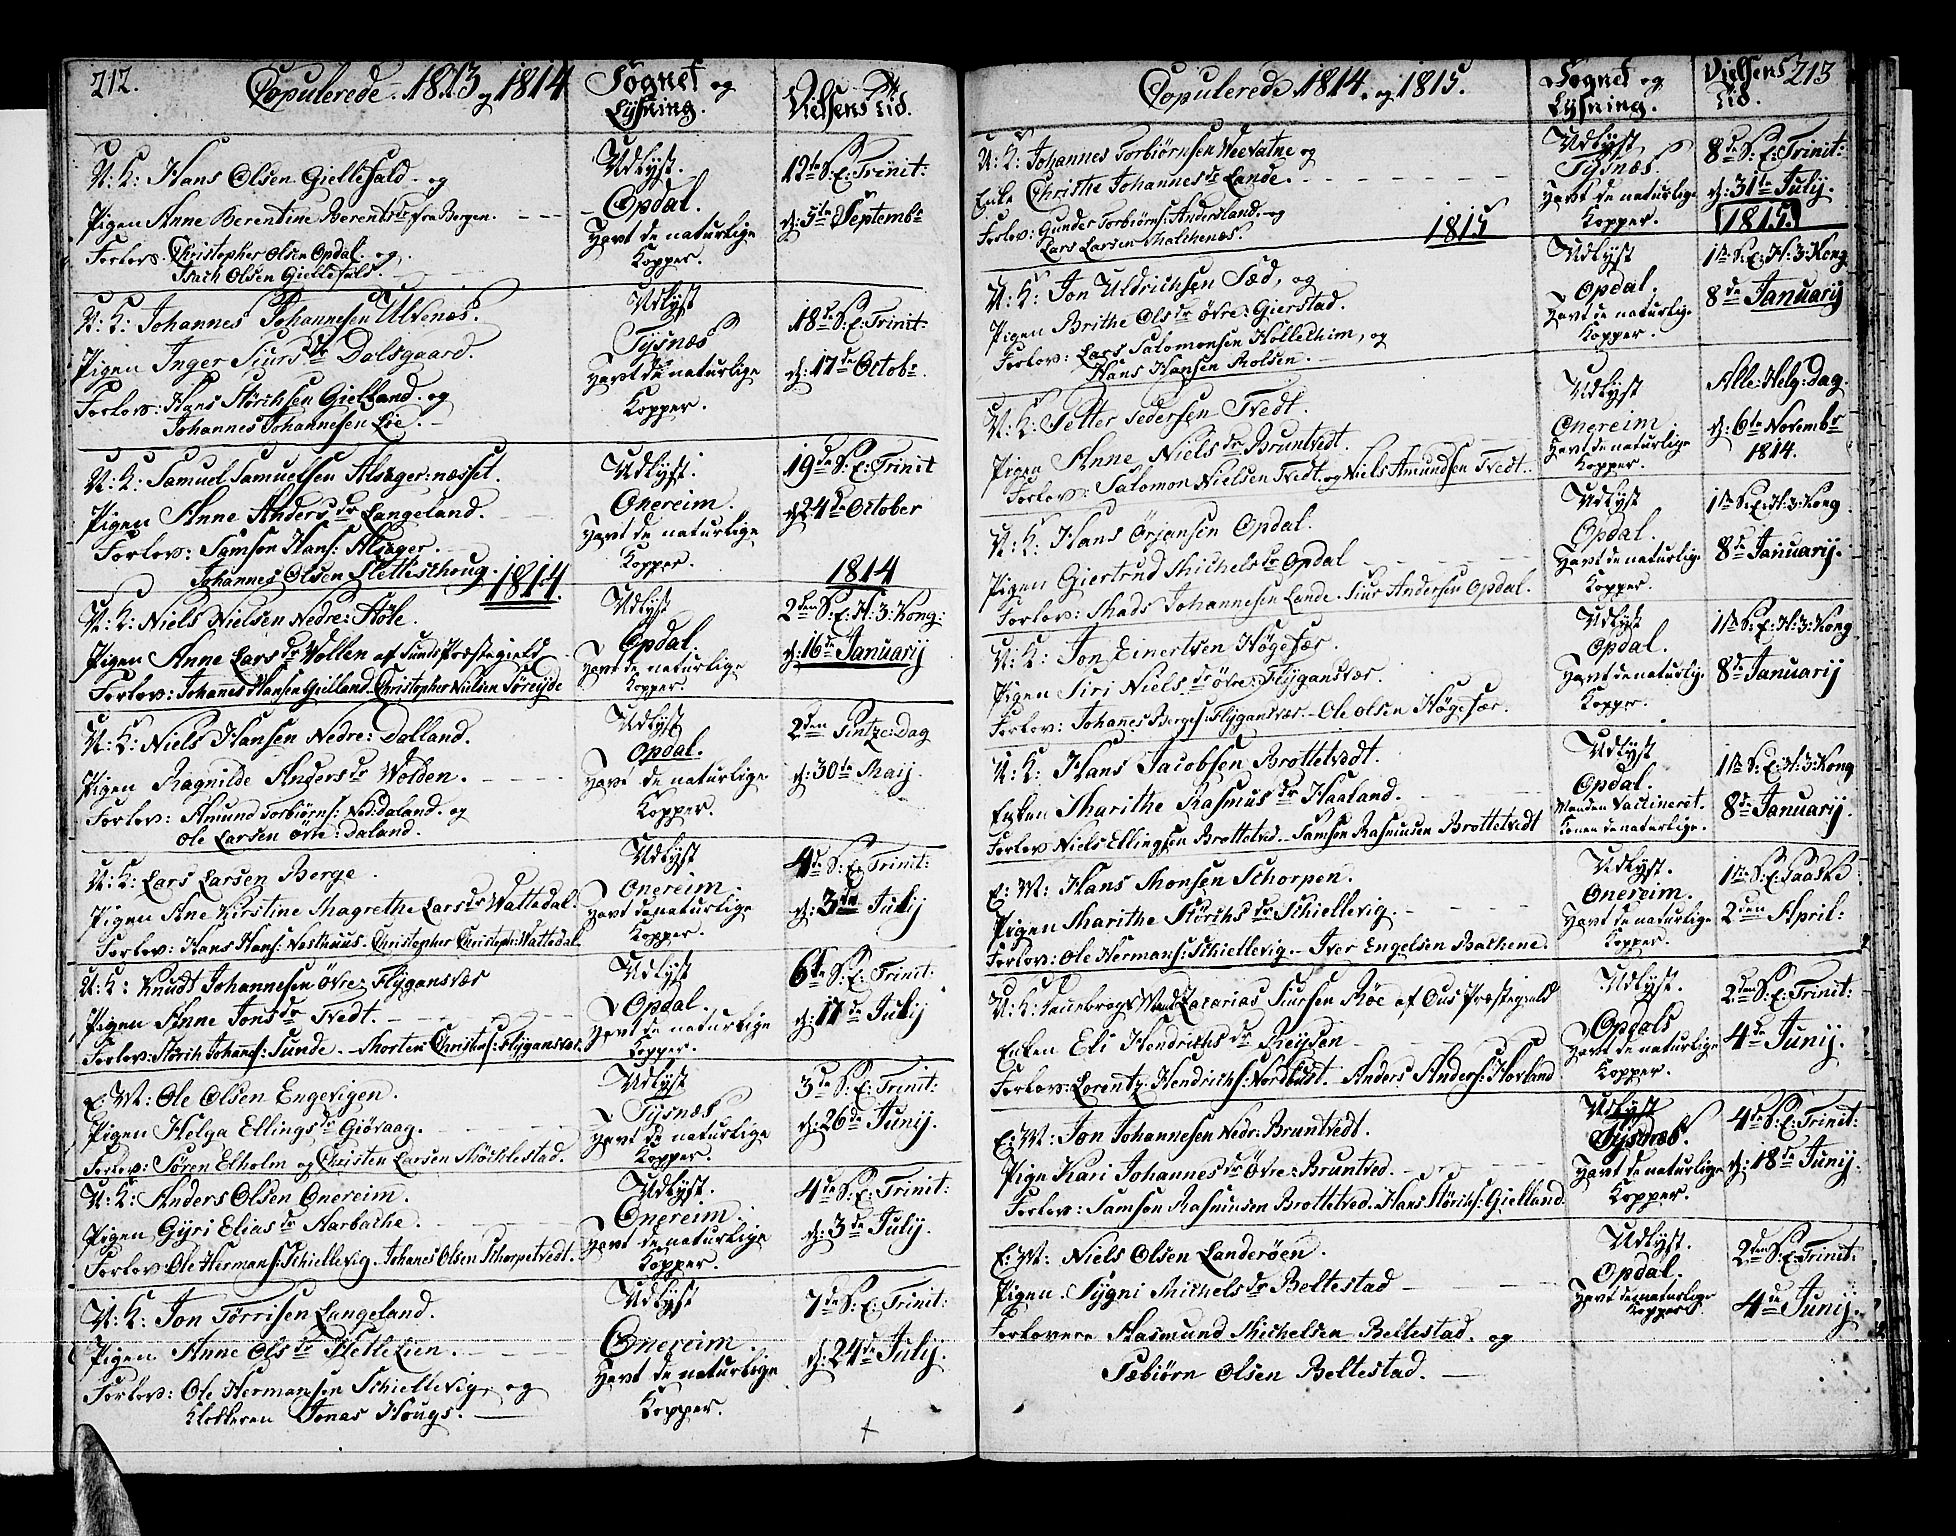 212.
Copulerede 1813 og 1814
Sognet og
Lysning.
Vielsens Tid.
U: K: Hans Olsen Giellefald og
Pigen Anne Berentine Berentsdr fra Bergen.
Forlov: Christopher Olsen Opdal. og
Isach Olsen Giellefald.
Udlyst.
Opdal.
Havt de naturlige
Kopper.
12te S: E: Trinit:
d: 5te Septembr
U: K: Johannes Johannesen Ulvenæs.
Pigen Inger Siursdr Dalsgaard.
Forlov: Hans Størchsen Gielland. og
Johannes Johannesen Lie.
Udlyst
Tysnæs
Havt de naturlige
Kopper.
18de S: E: Trinit:
d: 17de Octobr.
U: K: Samuel Samuelsen Alsager:næsset.
Pigen Anne Andersdr Langeland.
Forlov: Samson Hans: Alsager.
Johannes Olsen Flettesthoug.
Udlyst.
Onereim.
Havt de naturlige
Kopper.
19de S: E: Trinit
d 24de October
1814.
1814
U: K: Niels Nielsen Nedre: Høle.
Pigen Anne Larsdr Vollen af Sunds Præstegield
Forlov: Johannes Hansen Gielland. Christopher Nielsen Søreyde
Udlyst
Opdal.
Havt de naturlige
Kopper.
2den S: E: H: 3: Kong:
d: 16de Januarij
U: K: Niels Hansen Nedre: Dalland.
Pigen Ragnilde Andersdr Wolden.
Forlov: Amund Torbiørns: Ned: Daland. og
Ole Larsen Øvre: Daland.
Udlyst
Opdal.
Havt de naturlige
Kopper.
2den Pintze: Dag
d: 30te Maij.
U: K: Lars Larsen Berge.
Pigen Ane Kirstine Magrethe Larsdr Wattedal.
Forlov: Hans Hans: Vesthuus. Christopher Christoph: Wattedal.
Udlyst
Onereim.
Havt de naturlige
Kopper.
4de S: E: Trinit:
d: 3die Julij
U: K: Knudt Johannesen Øvre: Flygansvær
Pigen Anne Jonsdr Tvedt.
Forlov: Størch Johans: Sunde. Morten Christens: Flygansvær.
Udlyst
Opdal.
Havt de naturlige
Kopper.
6te S: E: Trinit:
d: 17de Julij
E: M: Ole Olsen Engevigen.
Pigen Helga Ellingsdr Giøvaag.
Forlov: Søren Elholm og Christen Larsen Møchlestad.
Udlyst
Tysnæs
Havt de naturlige
Kopper.
3de S: E: Trinit:
d: 26de Junij.
U: K: Anders Olsen Onereim.
Pigen Gyri Eliasdr Aarbache.
Forlov: Ole Hermans: Schiellevig. Johanes Olsen Schorpetvedt.
Udlyst.
Onereim.
Havt de naturlige
Kopper.
4de S: E: Trinit:
d: 3de Julij.
U: K: Jon Tørrisen Langeland.
Pigen Anne Olsdr Hetlelien.
Forlov: Ole Hermansen Schiellevig, og
Klokkeren Jonas Hougs.
Udlyst
Onereim.
Havt de naturlige
Kopper.
7de S: E: Trinit:
d: 24de Julij.
Copulerede 1814. og 1815.
Sognet og
Lysning.
Vielsens
Tid.
213
U: K: Johannes Torbiørnsen Weevatne og
Enke Christhe Johannesdr Lande.
Forlov: Gunder Torbiørns: Andersland. og
Lars Larsen Malchenæs.
Udlyst
Tysnæs.
Havt de naturlige
Kopper.
8de S: E: Trinit:
d: 31te Julij.
1815
1815.
U: K: Jon Uldrichsen Sæd, og
Pigen Brithe Olsdr Øvre: Gierstad.
Forlov: Lars Salomonsen Hollechim, og
Hans Hansen Rolsen.
Udlyst
Opdal.
Havt de naturlige
Kopper.
1ste S: E: H: 3: Kong
8de Januarij
U: K: Petter Pedersen Tvedt.
Pigen Anne Nielsdr Bruntvedt.
Forlov: Salomon Nielsen Tvedt. og Niels Amundsen Tvedt.
Udlyst
Onereim
Havt de naturlige
Kopper.
Alle: Helg: dag.
d: 6te Novembr
1814.
U: K: Hans Ørjansen Opdal.
Pigen Giertrud Michelsdr Opdal
Forlov: Mads Johannesen Lande. Siur Andersen Opdal.
Udlyst
Opdal.
Havt de naturlige
Kopper.
1ste S: E: H: 3: Kong
8de Januarij.
U: K: Jon Einertsen Høgefær.
Pigen Siri Nielsdr Øvre: Flygansvær.
Forlov: Johanes Berges: Flygansvær. Ole Olsen Høgefær.
Udlyst
Opdal.
Havt de naturlige
Kopper.
1ste S: E: H: 3: Kong
8de Januarij
U: K: Hans Jacobsen Brottetvedt.
Enken Marithe Rasmusdr Haaland.
Forlov Niels Ellingsen Brottetved. Samson Rasmusen Brottetvedt
Udlyst
Opdal.
Manden Vaccineret.
Konen de naturlige.
1ste S: E: H: 3: Kong
8de Januarij.
E: M: Hans Monsen Schorpen.
Pigen Marithe Størchsdr Schiellevig.
Forlov: Ole Hermans: Schiellevig. Iver Engelsen Bachene.
Udlyst.
Onereim.
Havt de naturlige
Kopper.
1ste S: E: Paaske
2den April:
U: K: Dannebrogs Mand Zacarias Siursen Røe af Ous Præstegield
Enken Eli Hendrichsdr Reysen
Forlov: Lorentz Hendrichs: Nordhust. Anders Anders: Hovland
Udlyst.
Opdals
Havt de naturlige
Kopper.
2den S: E: Trinit:
4de Junij.
E: M: Jon Johannesen Nedr: Bruntvedt.
Pige Kari Johannesdr Øvre: Bruntved.
Forlov: Samson Rasmusen Brottetved. Hans Størchs: Gielland.
Udlyst
Tysnæs.
Havt de naturlige
Kopper.
4de S: E: Trinit:
d: 18de Junij.
E: M: Niels Olsen Landerøen.
Pigen Sygni Michelsdr Beltestad
Forlovere Aasmund Michelsen Beltestad. og
Sæbiørn Olsen Beltestad.
Udlyst.
Opdal.
Havt de naturlige
Kopper
2den S: E: Trinit:
4de Junij.